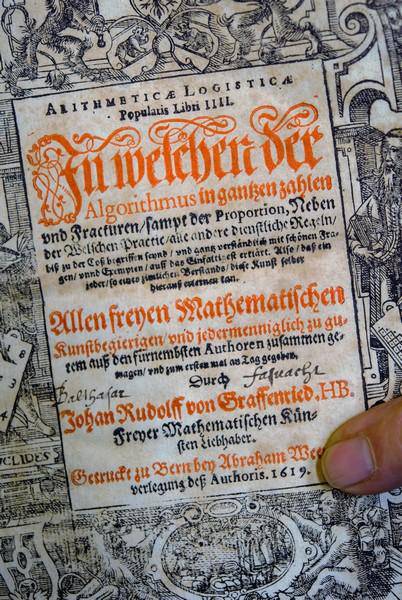 ARITHMETICÆ LOGISTICÆ
Popularis Libri IIII.
In welchen der
Algorithmus in gantzen zahlen
vnd Fracturen / sampt der Proportion, Neben
der Welschen Practic / alle andere dienstliche Regeln /
biß zu der Coß begriffen seynd / vnd gantz verständtlich mit schönen Fra-
gen / vnnd Exempeln / auff das Einfaltigst erklärt. Also daß ein
jeder / so eines zimlichen Verstands / diese Kunst selber
hierauß erlernen kan.
Allen freyen Mathematischen
Kunstbegierigen / vnd jedermenniglich zu gu-
tem auß den fürnembsten Authoren zusammen ge-
tragen / vnd zum ersten mal an Tag gegeben.
Durch
Balthasar
Johan Rudolff von Graffenried. HB.
Freyer Mathematischen Kün-
sten Liebhaber.
Getruckt zu Bern bey Abraham
verlegung deß Authoris. 1619.
CLIDES